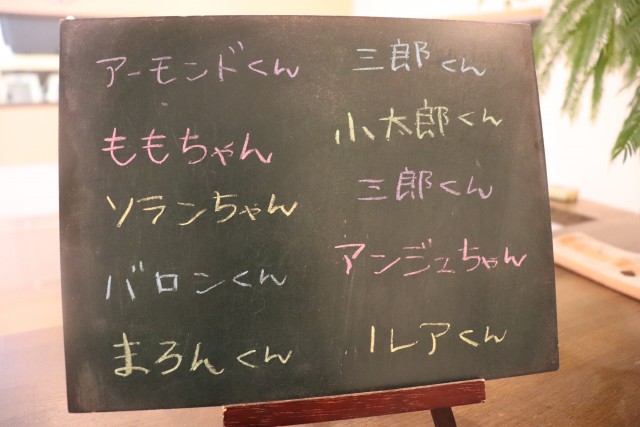 アーモンドくん
ももちゃん
ソランちゃん
バロンくん
まろんくん
三郎くん
小太郎くん
三郎くん
アンジュちゃん
ルアくん